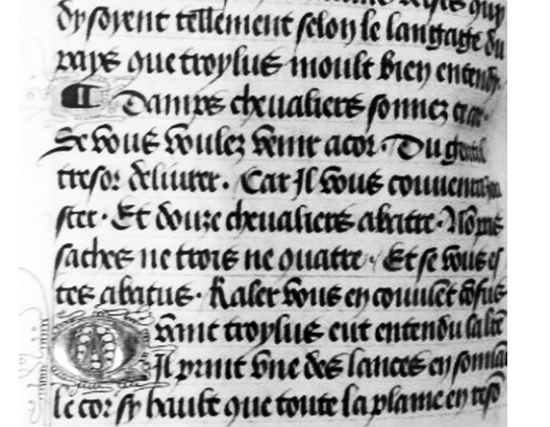 dysoyent tellement selon le langage du
pays que troylus moult bien entendy.
Damps cheualiers sonnez ce cor.
Se vous voulez venir a cor. Du gentil
tresor deliurer. Car Jl vous conuient
ster. Et douze cheualiers abatre. Non
saches ne trois ne quatre. Et se vous es
tes abatus. Raler vous en couuiet
Quant troylus eut entendu la
Jl print vne des lances en sonna
le cor sy hault que toute la plaine en